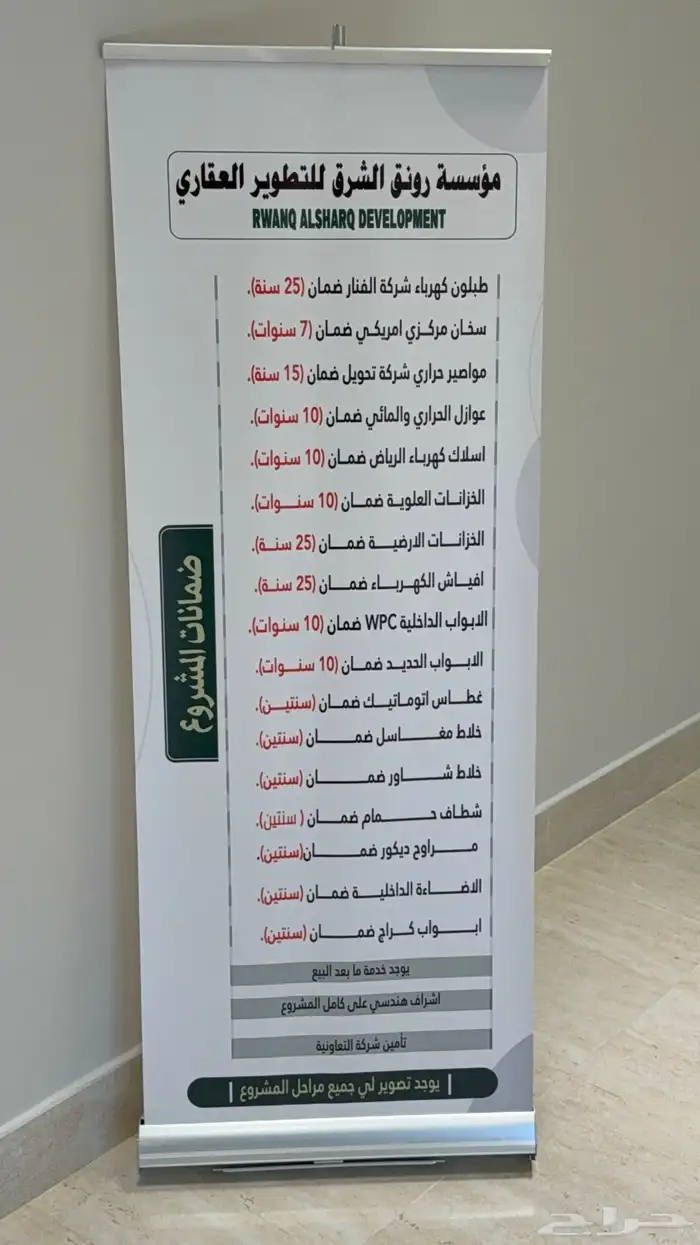 مؤسسة رونق الشرق للتطوير العقاري
RWANQ ALSHARQ DEVELOPMENT
ضمانات المشروع
طبلون كهرباء شركة الفنار ضمان (25 سنة).
سخان مركزي امريكي ضمان (7 سنوات).
مواصير حراري شركة تحويل ضمان (15 سنة).
عوازل الحراري والمائي ضمان (10 سنوات).
اسلاك كهرباء الرياض ضمان (10 سنوات).
الخزانات العلوية ضمان (10 سنوات).
الخزانات الارضية ضمان (25 سنة).
افياش الكهرباء ضمان (25 سنة).
الابواب الداخلية WPC ضمان (10 سنوات).
الابواب الحديد ضمان (10 سنوات).
غطاس اتوماتيك ضمان (سنتين).
خلاط مغاسل ضمان (سنتين).
خلاط شاور ضمان (سنتين).
شطاف حمام ضمان ( سنتين).
مراوح ديكور ضمان(سنتين).
الاضاءة الداخلية ضمان (سنتين).
ابواب كراج ضمان (سنتين).
يوجد خدمة ما بعد البيع
اشراف هندسي على كامل المشروع
تأمين شركة التعاونية
| يوجد تصوير لي جميع مراحل المشروع |
حراج